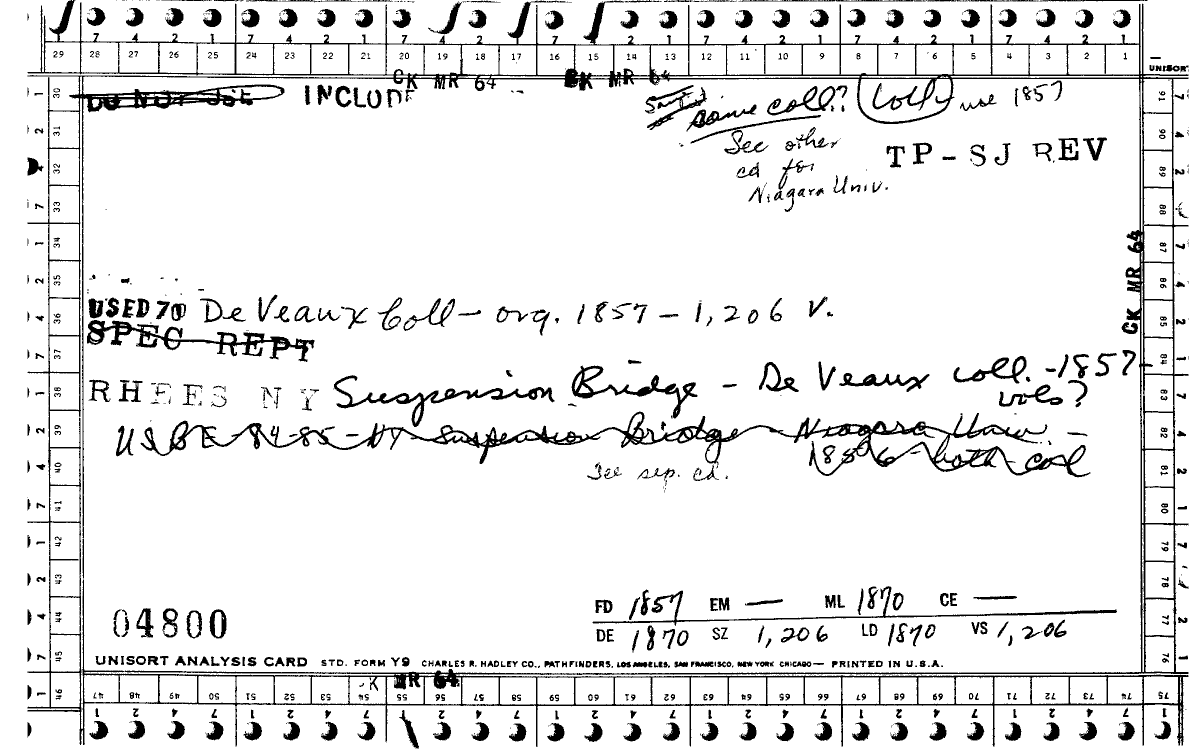 7 4 2 1 7 4 2 1 7 4 2 1 7 4 2 1 7 4 2 1 7 4 2 1 7 4 2 1
29 28 27 26 25 24 23 22 21 20 19 18 17 16 15 14 13 12 11 10 9 8 7 6 5 4 3 2 1
CK MR 64 CK MR 64
UNISORT
DO NOT USE INCLUDE
same coll? Coll use 1857
See other
cd for
Niagara Univ.
TP-SJ REV
CK MR 64
USED 70 De Veaux Coll - org. 1857 - 1,206 V.
SPEC REPT
RHEES NY Suspension Bridge - De Veaux coll. - 1857
vols?
USBE-84-85-NY-Suspension Bridge - Niagara Univ. -
1856 - both - col
See sep. cd.
FD 1857 EM — ML 1870 CE —
04800
DE 1870 SZ 1,206 LD 1870 VS 1,206
UNISORT ANALYSIS CARD STD. FORM Y9 CHARLES R. HADLEY CO., PATHFINDERS, LOS ANGELES, SAN FRANCISCO, NEW YORK CHICAGO — PRINTED IN U.S.A.
MR 64
46 47 48 49 50 51 52 53 54 55 56 57 58 59 60 61 62 63 64 65 66 67 68 69 70 71 72 73 74 75